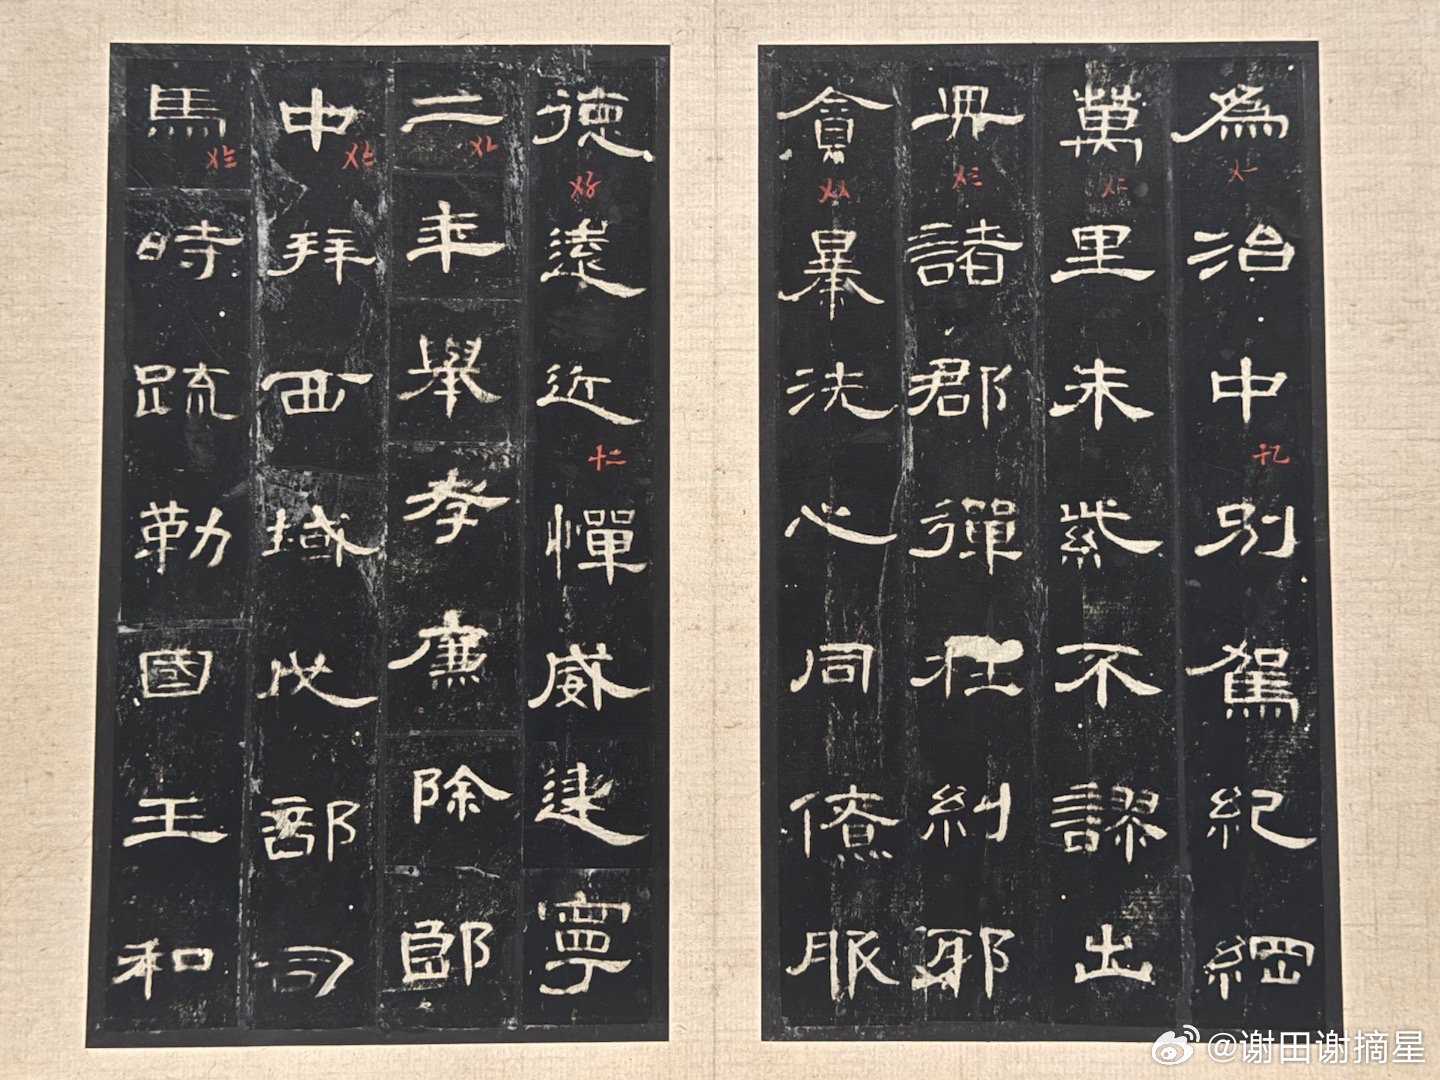 為治中別駕紀綱
萬里朱紫不謬出
典諸郡彈枉糾邪
貪暴洗心同僚服
德遠近憚威建寧
二年舉孝廉除郎
中拜西域戊部司
馬時疏勒國王和
十二
@谢田谢摘星